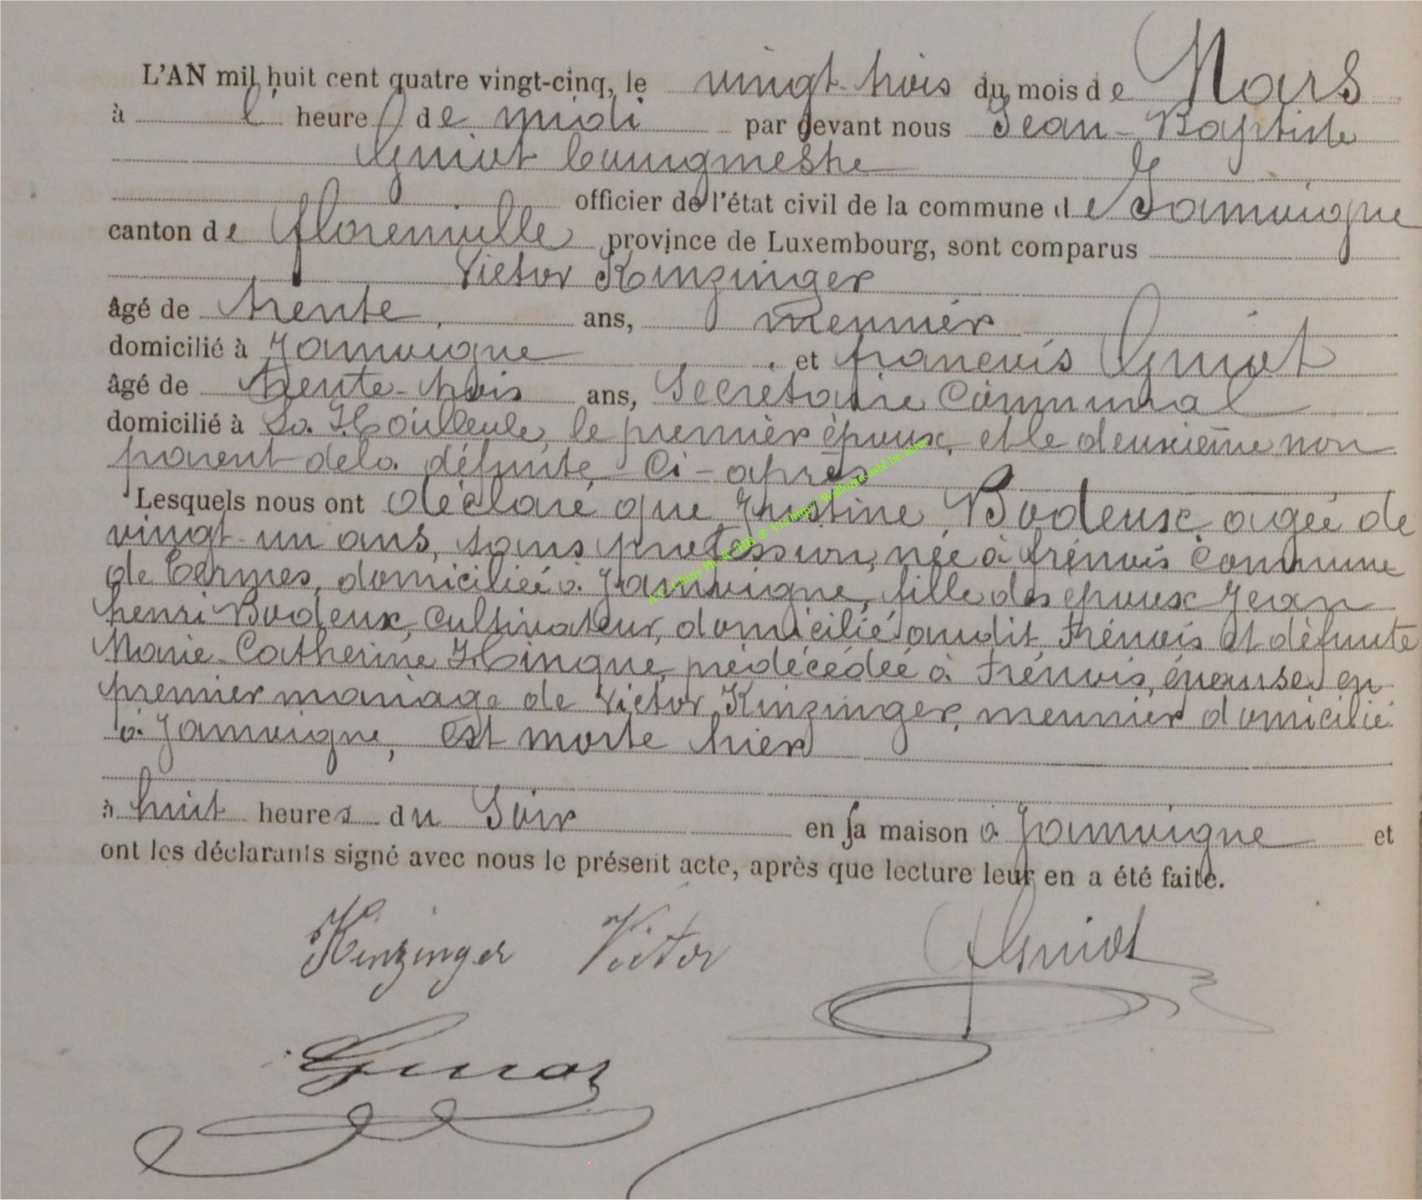 L'AN mil huit cent quatre vingt-cinq, le vingt-trois du mois de Mars
à l' heure de midi par devant nous Jean-Baptiste
Guiot bourgmestre
officier de l'état civil de la commune de Jamoigne
canton de florenville province de Luxembourg, sont comparus
Victor Kinzinger
âgé de trente, ans, meunier
domicilié à Jamoigne et francois Guiot
âgé de trente-trois ans, Secrétaire Communal
domicilié à La Hoilleule, le premier époux, et le deuxième non
parent de la défunte Ci-après
Lesquels nous ont déclaré que Justine Bodeux agée de
vingt-un ans, sans profession, née à frénois commune
de domiciliée à Jamoigne, fille des époux Jean
henri Bodeux, Cultivateur, domicilié audit frénois et défunte
Marie-Catherine Hinque, prédécédée à frénois, épouse en
premier mariage de Victor Kinzinger, meunier domicilié
à Jamoigne, est morte hier
à huit heures du Soir en sa maison à Jamoigne et
ont les déclarants signé avec nous le présent acte, après que lecture leur en a été faite.
Kinzinger Victor Guiot
Guiot